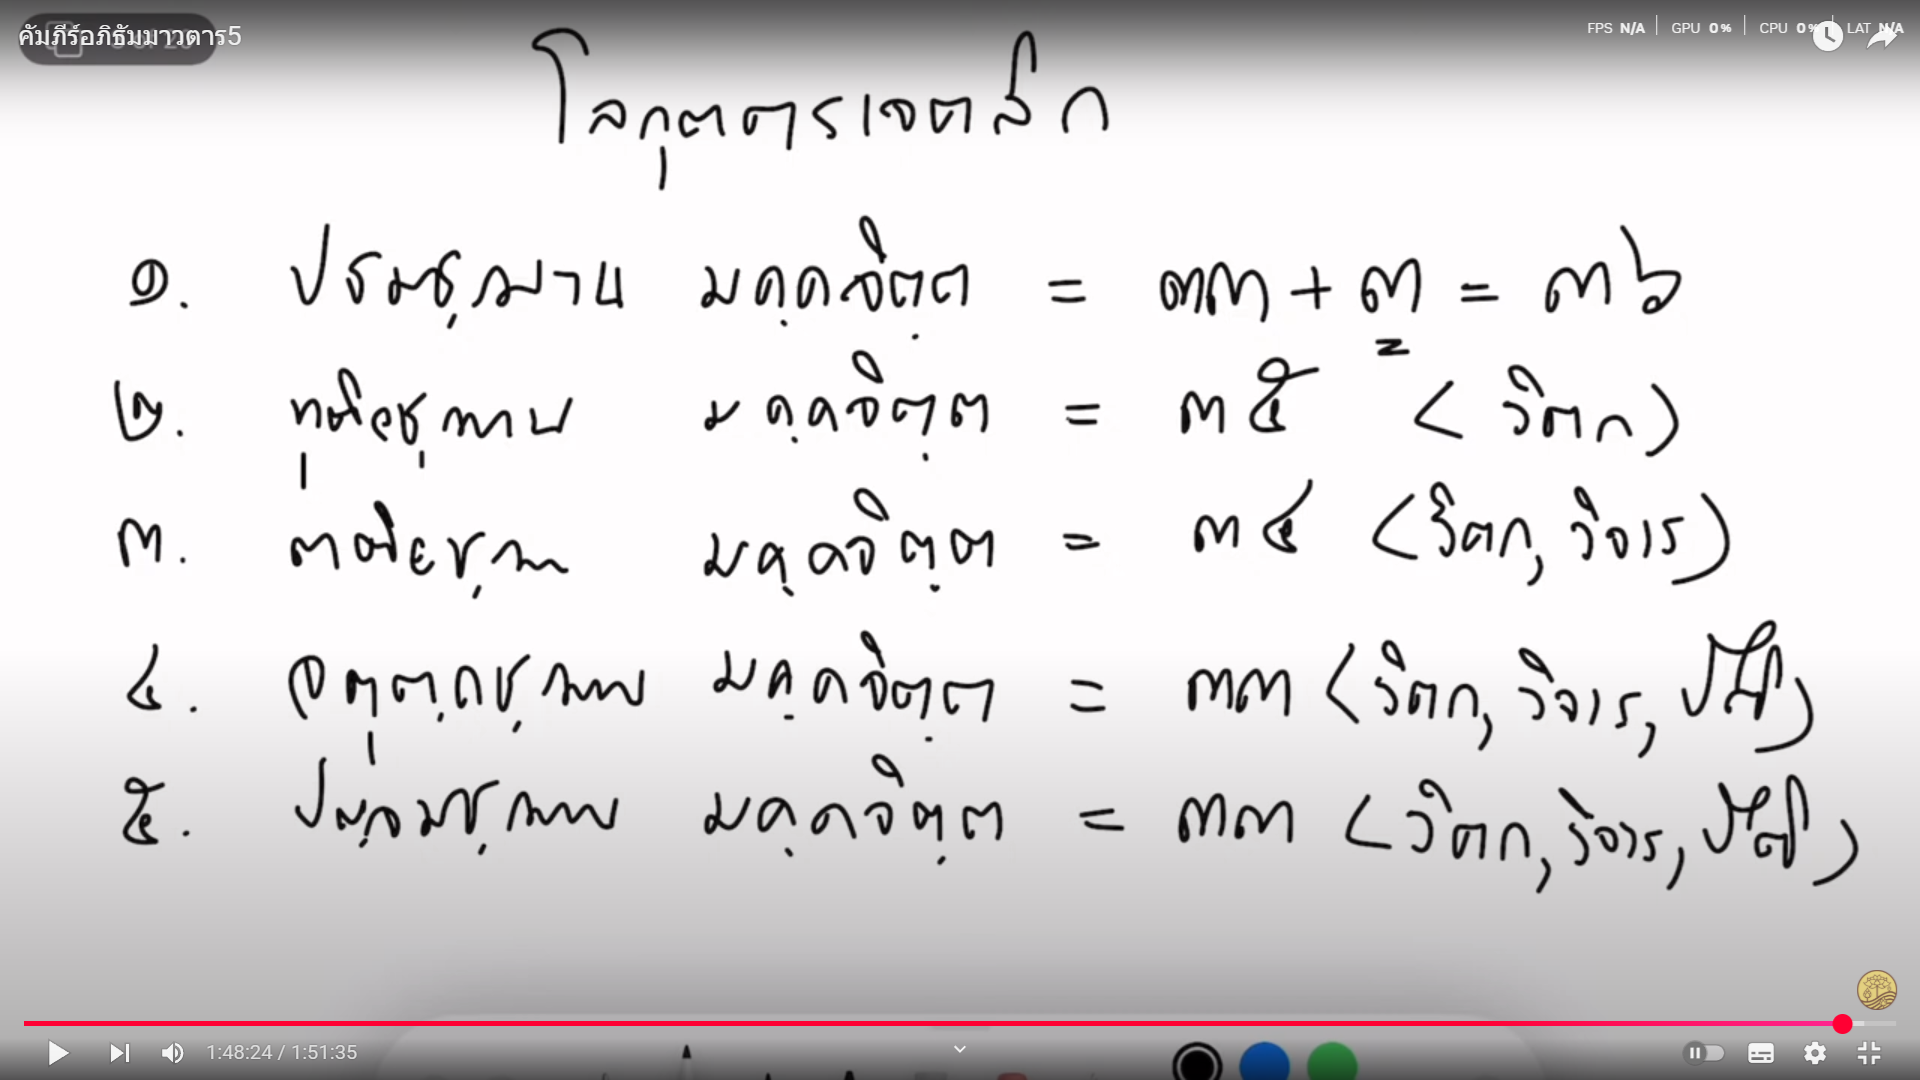 คัมภีร์อภิธัมมาวตาร5
FPS N/A GPU 0% CPU 0% LAT N/A
โลกุตตรเจตสิก
๑. ปฐมชฺฌาน มคฺคจิตฺต = ๓๓ + ๓ = ๓๖
๒. ทุติยชฺฌาน มคฺคจิตฺต = ๓๕ (วิตก)
๓. ตติยชฺฌาน มคฺคจิตฺต = ๓๔ (วิตก, วิจาร)
๔. จตุตฺถชฺฌาน มคฺคจิตฺต = ๓๓ (วิตก, วิจาร, ปีติ)
๕. ปญฺจมชฺฌาน มคฺคจิตฺต = ๓๓ (วิตก, วิจาร, ปีติ)
1:48:24 / 1:51:35